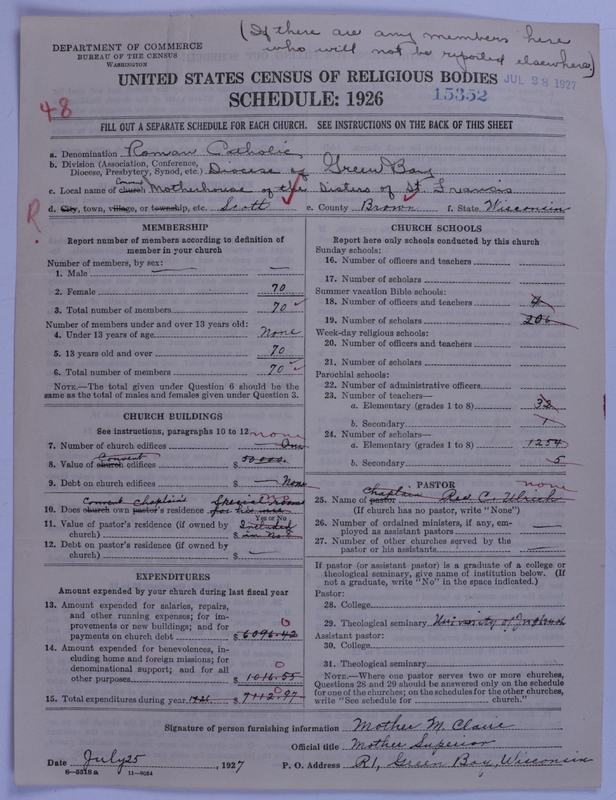 (If there are any members here
who will not be reported elsewhere)
DEPARTMENT OF COMMERCE
BUREAU OF THE CENSUS
WASHINGTON
UNITED STATES CENSUS OF RELIGIOUS BODIES
JUL 28 1927
SCHEDULE: 1926
15352
48
FILL OUT A SEPARATE SCHEDULE FOR EACH CHURCH. SEE INSTRUCTIONS ON THE BACK OF THIS SHEET
a. Denomination Roman Catholic
b. Division (Association, Conference, Diocese, Presbytery, Synod, etc.) Diocese of Green Bay
c. Local name of church Convent Motherhouse of the Sisters of St. Francis
d. City, town, village, or township, etc. Scott e. County Brown f. State Wisconsin
R.
MEMBERSHIP
Report number of members according to definition of
member in your church
Number of members, by sex:
1. Male —
2. Female 70
3. Total number of members 70
Number of members under and over 13 years old:
4. Under 13 years of age None
5. 13 years old and over 70
6. Total number of members 70
NOTE.—The total given under Question 6 should be the
same as the total of males and females given under Question 3.
CHURCH BUILDINGS
See instructions, paragraphs 10 to 12 none
7. Number of church edifices One
8. Value of church Convent edifices $ 50000.
9. Debt on church edifices $ None
10. Does church Convent own pastor's Chaplain's residence
Yes or No
11. Value of pastor's residence (if owned by
church) $ Included in No 8
12. Debt on pastor's residence (if owned by
church) $ —
EXPENDITURES
Amount expended by your church during last fiscal year
13. Amount expended for salaries, repairs,
and other running expenses; for im-
provements or new buildings; and for
payments on church debt $ 6096.42 0
14. Amount expended for benevolences, in-
cluding home and foreign missions; for
denominational support; and for all
other purposes $ 1016.55 0
15. Total expenditures during year 1926 $ 7112.97 0
CHURCH SCHOOLS
Report here only schools conducted by this church
Sunday schools:
16. Number of officers and teachers
17. Number of scholars
Summer vacation Bible schools:
18. Number of officers and teachers 4
19. Number of scholars 206
Week-day religious schools:
20. Number of officers and teachers
21. Number of scholars
Parochial schools:
22. Number of administrative officers
23. Number of teachers—
a. Elementary (grades 1 to 8) 32
b. Secondary 1
24. Number of scholars—
a. Elementary (grades 1 to 8) 1254
b. Secondary 5
PASTOR none
25. Name of pastor Chaplain Rev. C. Ulrich
(If church has no pastor, write "None")
26. Number of ordained ministers, if any, em-
ployed as assistant pastors —
27. Number of other churches served by the
pastor or his assistants —
If pastor (or assistant pastor) is a graduate of a college or
theological seminary, give name of institution below. (If
not a graduate, write "No" in the space indicated.)
Pastor:
28. College
29. Theological seminary University of
Assistant pastor:
30. College
31. Theological seminary
NOTE.—Where one pastor serves two or more churches,
Questions 28 and 29 should be answered only on the schedule
for one of the churches; on the schedules for the other churches,
write "See schedule for church."
Signature of person furnishing information Mother M. Claire
Official title Mother Superior
Date July 25, 1927 P. O. Address R1, Green Bay, Wisconsin
6—5518a 11—9054